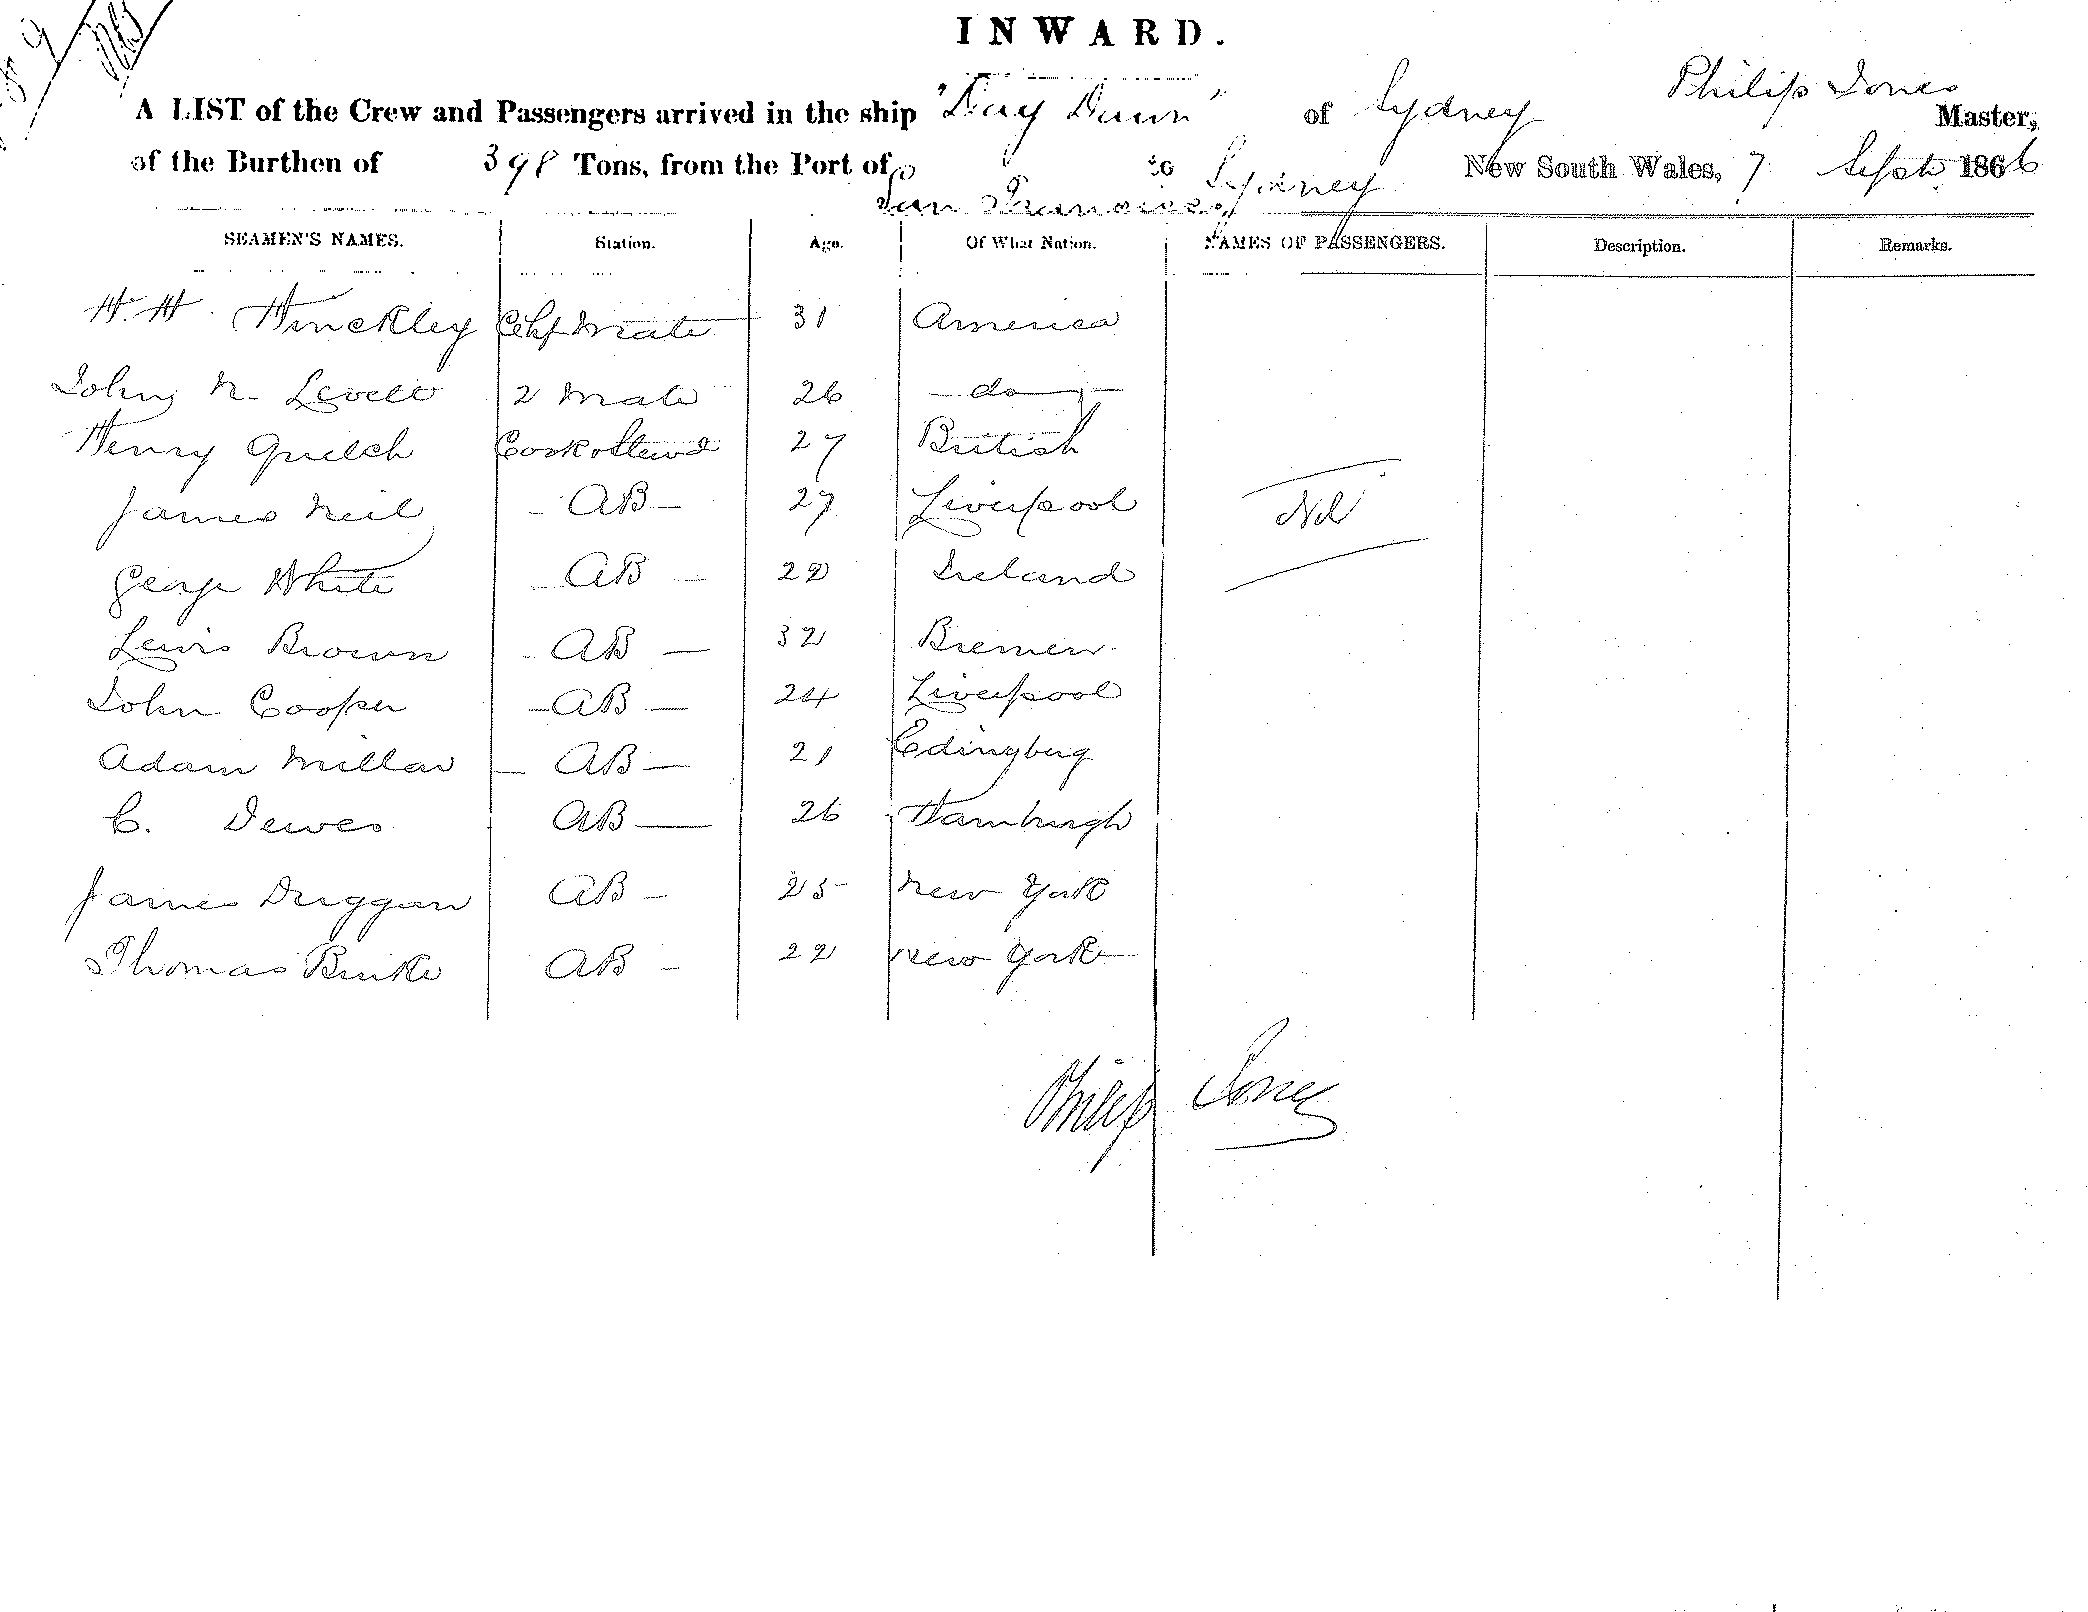 INWARD.
A LIST of the Crew and Passengers arrived in the ship "Day Dawn" of Sydney Philip Jones Master,
of the Burthen of 398 Tons, from the Port of San Francisco to Sydney New South Wales, 7 Sept 1866
SEAMEN'S NAMES. Station. Age. Of What Nation. NAMES OF PASSENGERS. Description. Remarks.
H. H. Hinckley Chf Mate 31 America
John N. 2 Mate 26 do
Henry Quelch Cook & Stewd 27 British
James Neil AB 27 Liverpool Nil
George White AB 22 Ireland
Lewis Brown AB 32 Bremen
John Cooper AB 24 Liverpool
Adam Millar AB 21 Edingburg
C. Dewes AB 26 Hamburgh
James Duggan AB 25 New York
Thomas Burke AB 22 New York
Philip Jones